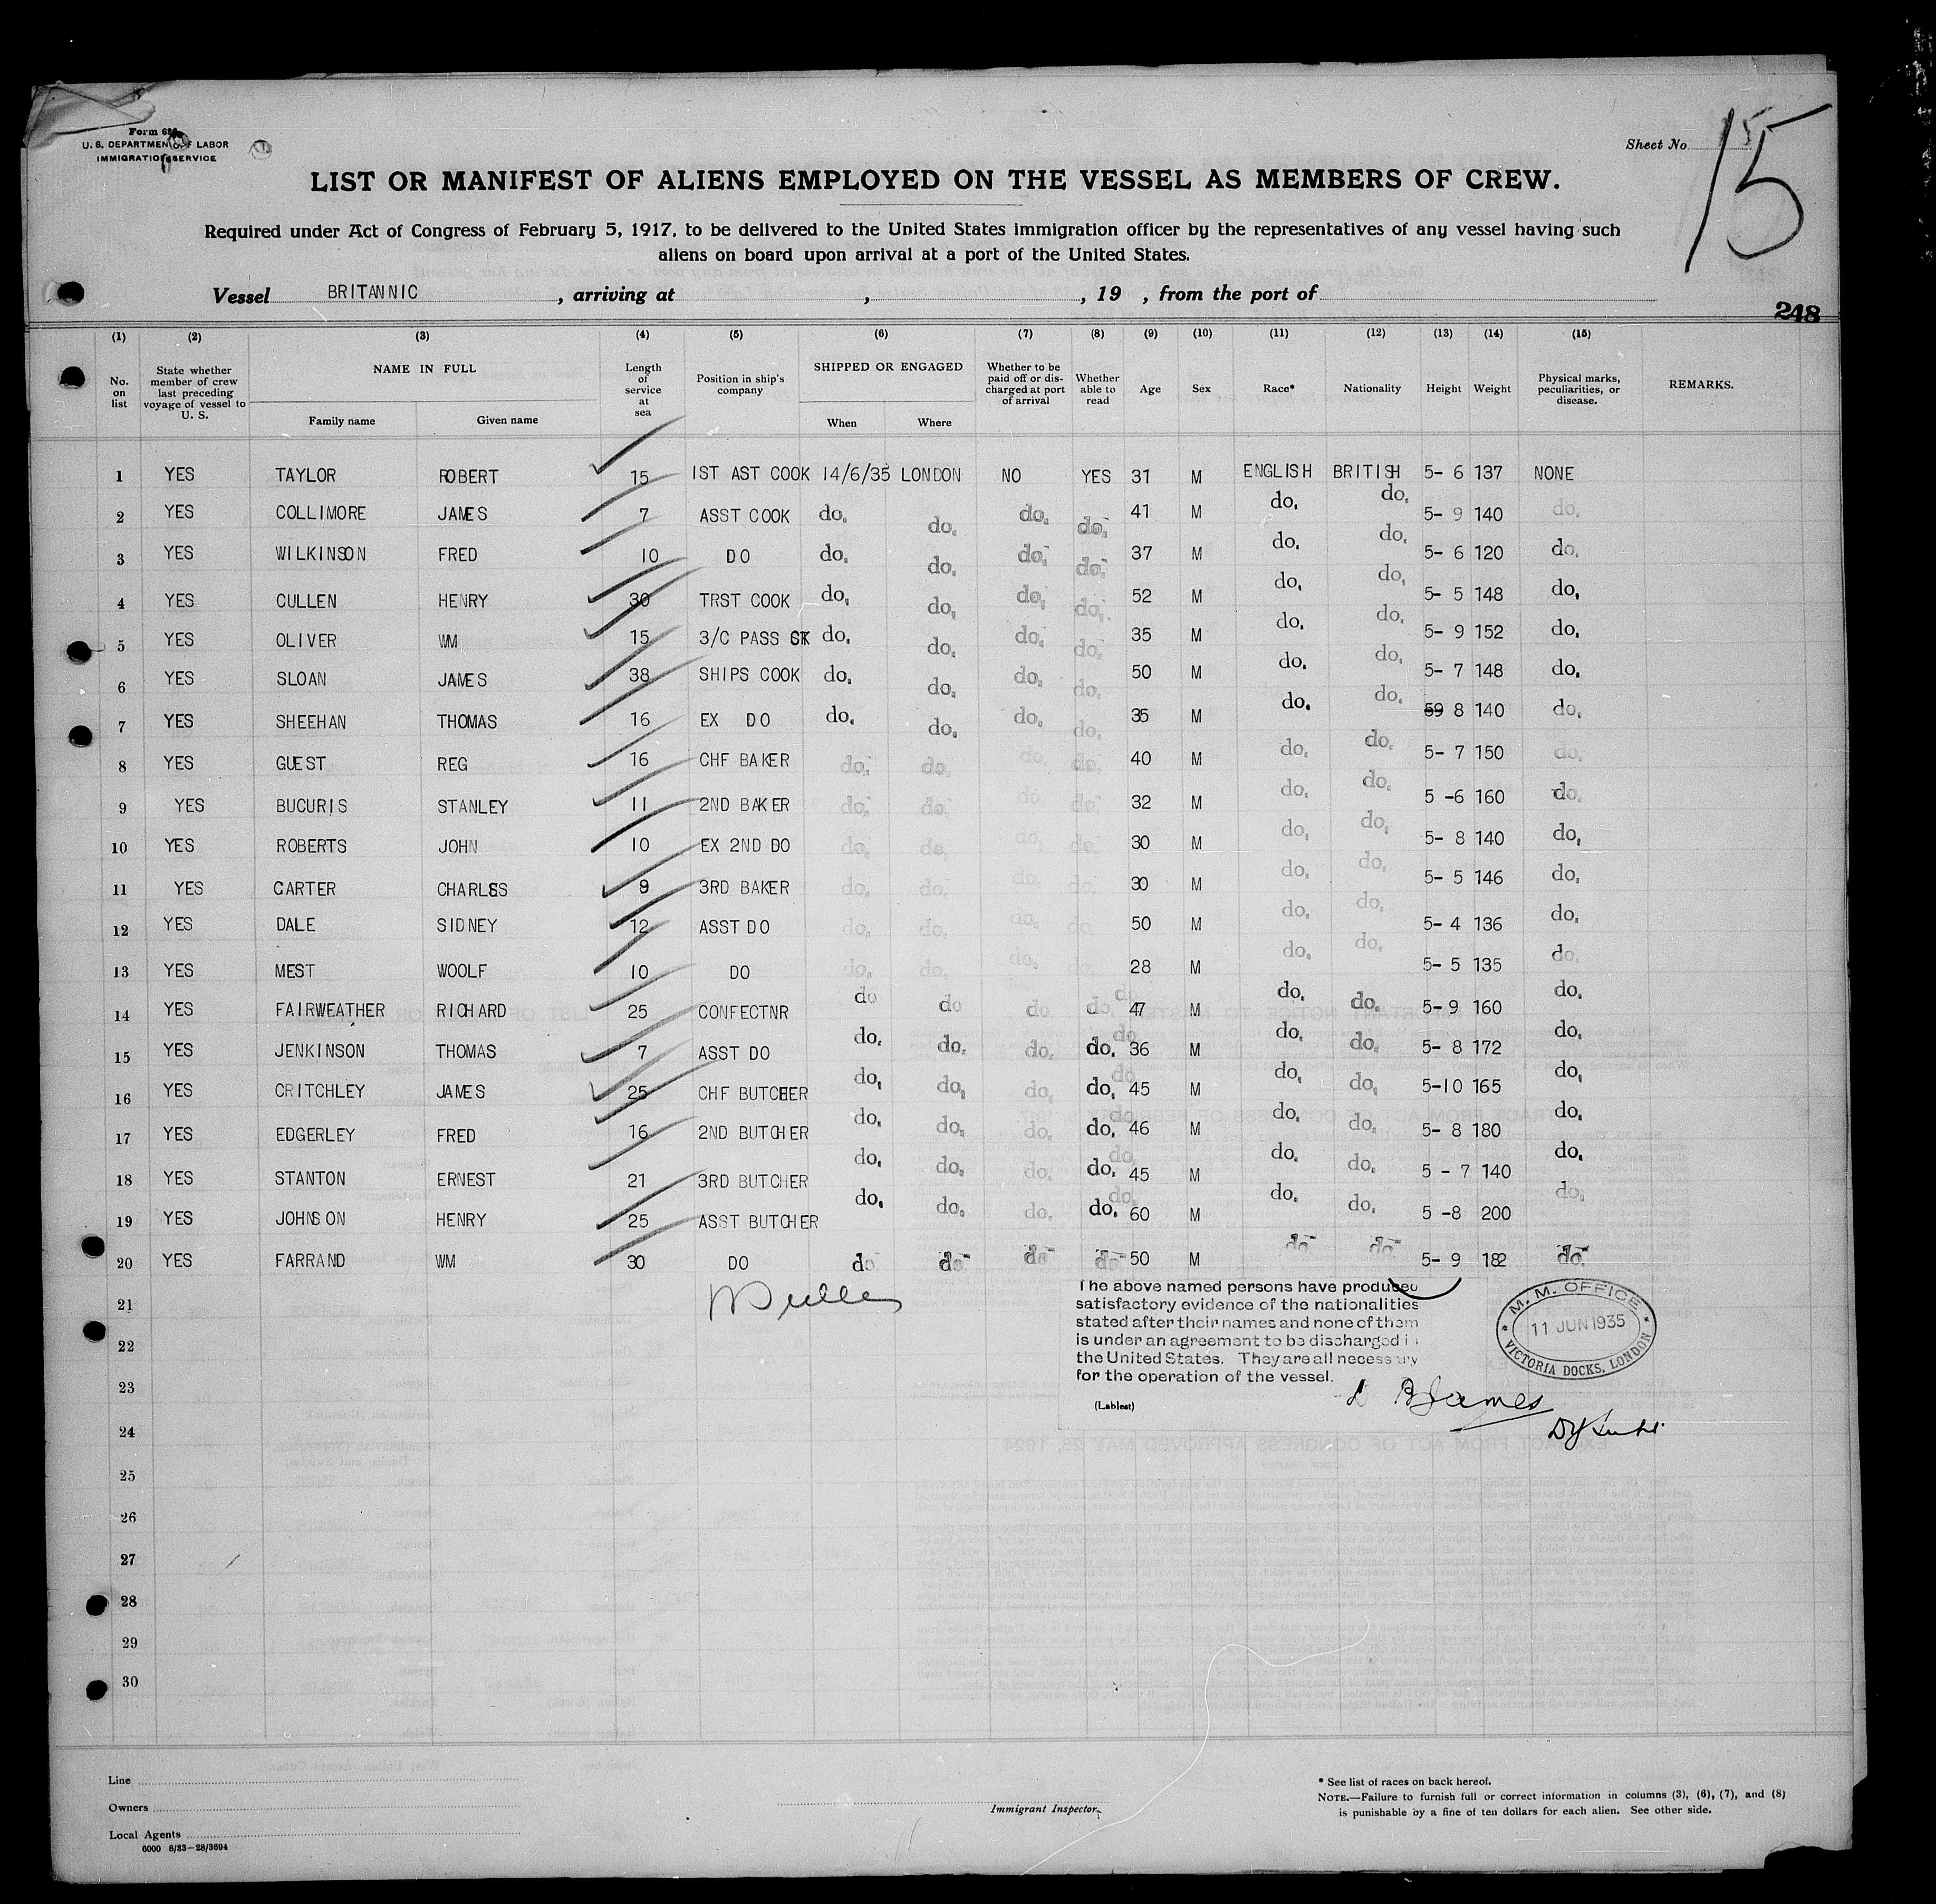 Form 680
U. S. DEPARTMENT OF LABOR
IMMIGRATION SERVICE
Sheet No. 15
15
LIST OR MANIFEST OF ALIENS EMPLOYED ON THE VESSEL AS MEMBERS OF CREW.
Required under Act of Congress of February 5, 1917, to be delivered to the United States immigration officer by the representatives of any vessel having such
aliens on board upon arrival at a port of the United States.
Vessel BRITANNIC , arriving at , , 19 , from the port of
248
(1) (2) (3) (4) (5) (6) (7) (8) (9) (10) (11) (12) (13) (14) (15)
No. on list State whether member of crew last preceding voyage of vessel to U. S. NAME IN FULL Family name Given name Length of service at sea Position in ship's company SHIPPED OR ENGAGED When Where Whether to be paid off or discharged at port of arrival Whether able to read Age Sex Race* Nationality Height Weight Physical marks, peculiarities, or disease. REMARKS.
1 YES TAYLOR ROBERT 15 1ST AST COOK 14/6/35 LONDON NO YES 31 M ENGLISH BRITISH 5- 6 137 NONE
2 YES COLLIMORE JAMES 7 ASST COOK do. do. do. do. 41 M do. do. 5- 9 140 do.
3 YES WILKINSON FRED 10 DO do. do. do. do. 37 M do. do. 5- 6 120 do.
4 YES CULLEN HENRY 30 TRST COOK do. do. do. do. 52 M do. do. 5- 5 148 do.
5 YES OLIVER WM 15 3/C PASS CK do. do. do. do. 35 M do. do. 5- 9 152 do.
6 YES SLOAN JAMES 38 SHIPS COOK do. do. do. do. 50 M do. do. 5- 7 148 do.
7 YES SHEEHAN THOMAS 16 EX DO do. do. do. do. 35 M do. do. 59 8 140 do.
8 YES GUEST REG 16 CHF BAKER do. do. do. do. 40 M do. do. 5- 7 150 do.
9 YES BUCURIS STANLEY 11 2ND BAKER do. do. do. do. 32 M do. do. 5 -6 160 do.
10 YES ROBERTS JOHN 10 EX 2ND DO do. do. do. do. 30 M do. do. 5- 8 140 do.
11 YES CARTER CHARLSS 9 3RD BAKER do. do. do. do. 30 M do. do. 5- 5 146 do.
12 YES DALE SIDNEY 12 ASST DO do. do. do. do. 50 M do. do. 5- 4 136 do.
13 YES MEST WOOLF 10 DO do. do. do. do. 28 M do. do. 5- 5 135 do.
14 YES FAIRWEATHER RICHARD 25 CONFECTNR do do do. do. 47 M do. do. 5-9 160 do.
15 YES JENKINSON THOMAS 7 ASST DO do. do. do. do. 36 M do. do. 5- 8 172 do.
16 YES CRITCHLEY JAMES 25 CHF BUTCHER do. do. do. do. 45 M do. do. 5-10 165 do.
17 YES EDGERLEY FRED 16 2ND BUTCHER do. do. do. do. 46 M do. do. 5- 8 180 do.
18 YES STANTON ERNEST 21 3RD BUTCHER do. do. do. do. 45 M do. do. 5 - 7 140 do.
19 YES JOHNSON HENRY 25 ASST BUTCHER do. do. do. do. 60 M do. do. 5 -8 200 do.
20 YES FARRAND WM 30 DO do do do do 50 M do do 5- 9 182 do.
21
22
23
24
25
26
27
28
29
30
The above named persons have produced
satisfactory evidence of the nationalities
stated after their names and none of them
is under an agreement to be discharged i
the United States. They are all necessary
for the operation of the vessel.
(Lablest)
M. M. OFFICE
11 JUN 1935
VICTORIA DOCKS, LONDON
James
Line
Owners
Local Agents
6000 8/33—28/3694
Immigrant Inspector.
* See list of races on back hereof.
NOTE.—Failure to furnish full or correct information in columns (3), (6), (7), and (8)
is punishable by a fine of ten dollars for each alien. See other side.